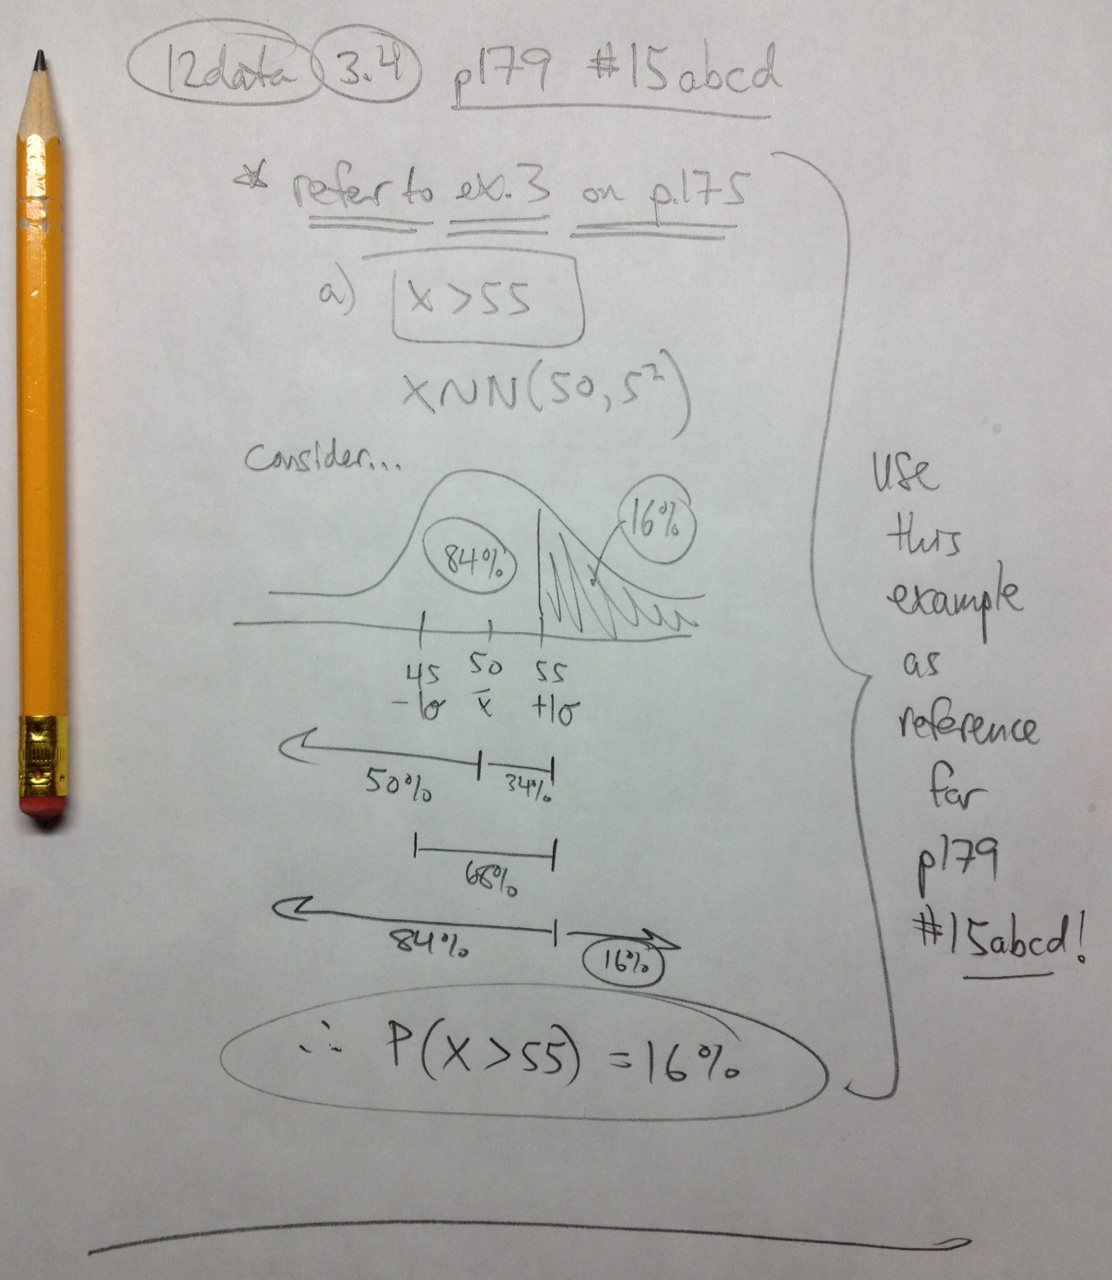 12data 3.4 p179 #15abcd
* refer to ex.3 on p.175
a) x > 55
X~N(50, 5²)
Consider...
84% 16%
45 50 55
-1σ x̄ +1σ
50% 34%
68%
84% 16%
∴ P(X > 55) = 16%
use
this
example
as
reference
for
p179
#15abcd!